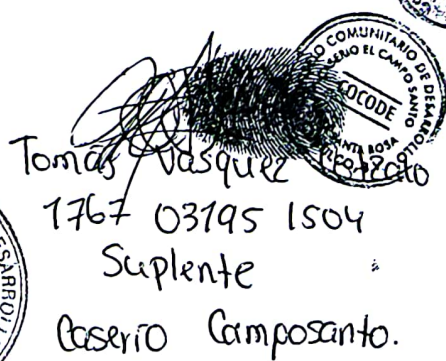 COMUNITARIO DE DESARROLLO
EL CAMPO SANTO
COCODE
SANTA ROSA
Tomás Vásquez
1767 03195 1504
Suplente
Caserío Camposanto.